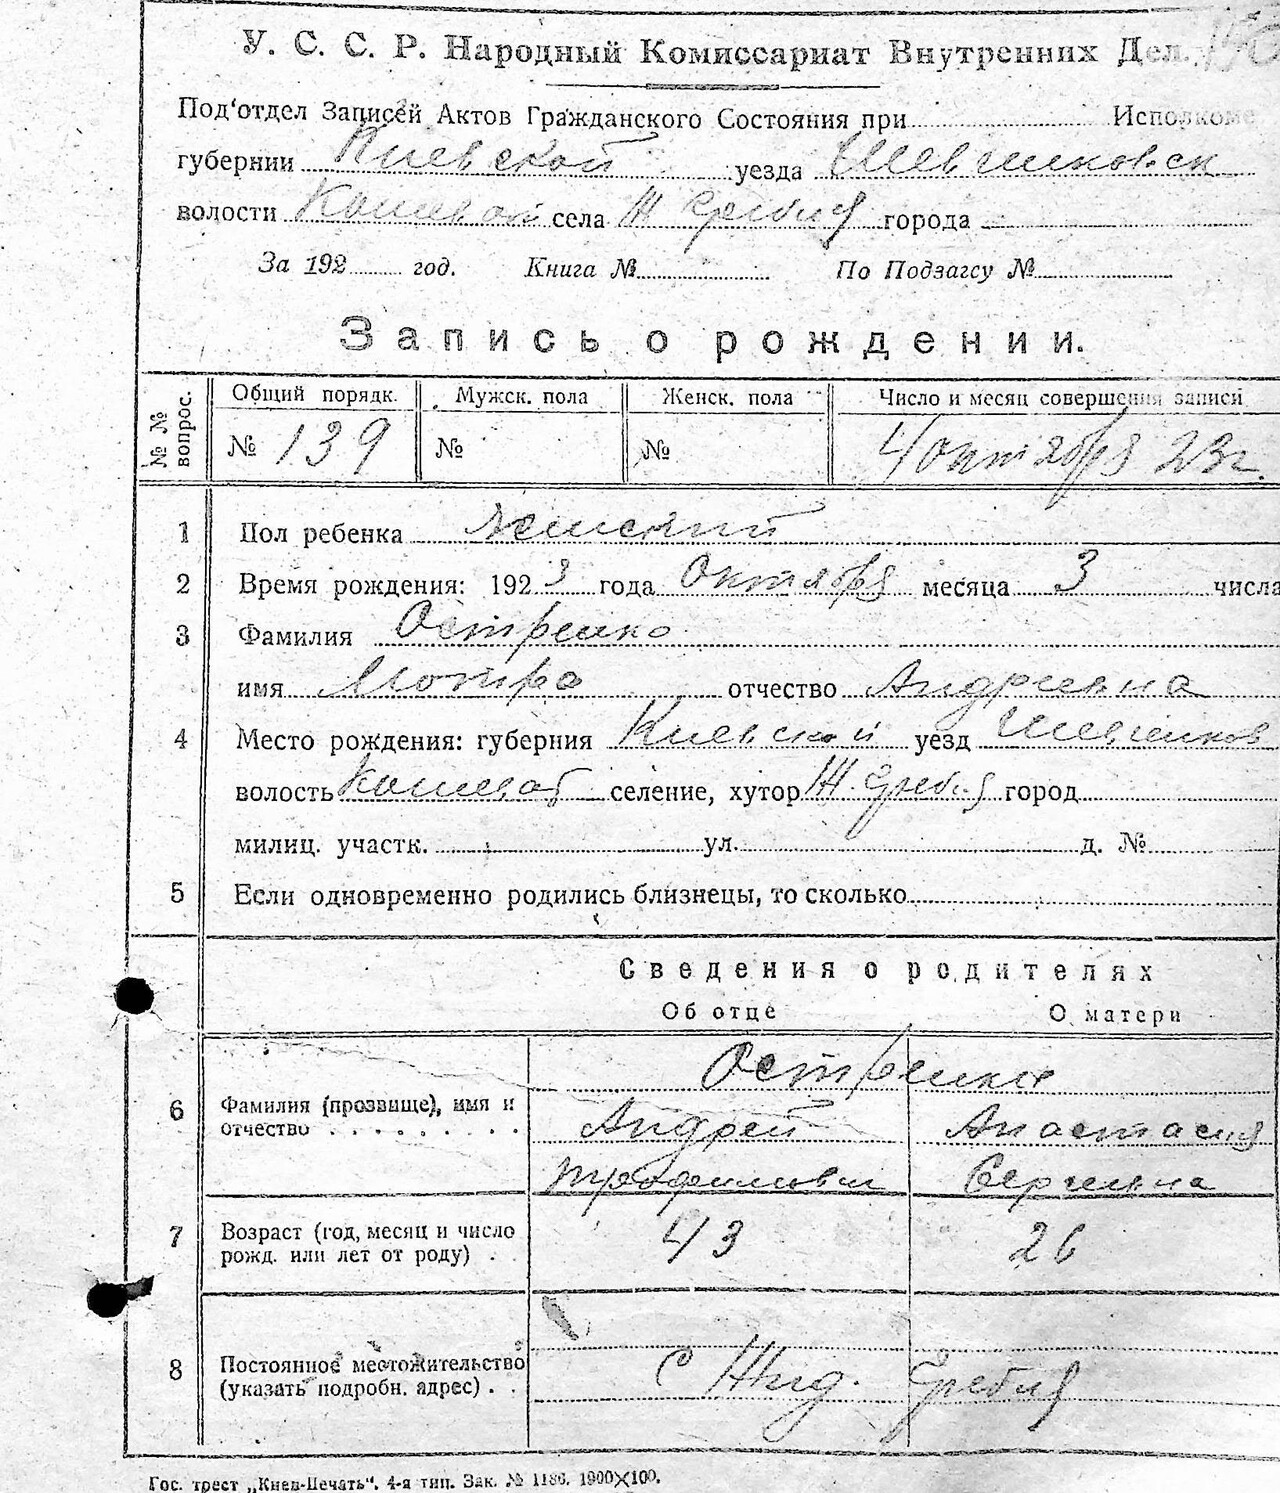 У. С. С. Р. Народный Комиссариат Внутренних Дел.
Под'отдел Записей Актов Гражданского Состояния при Исполкоме
губернии Киевской уезда Шевченковск
волости Кошеват села Ж Гребля города
За 192 год. Книга № По Подзагсу №
Запись о рождении.
№ № вопрос. Общий порядк. Мужск. пола Женск. пола Число и месяц совершения записи
№ 139 № № 4 Октября 23 г.
1 Пол ребенка Женский
2 Время рождения: 1923 года Октября месяца 3 числа
3 Фамилия Остренко
имя Мотра отчество Андреевна
4 Место рождения: губерния Киевской уезд Шевченков
волость Кошеват селение, хутор Ж. Гребля город
милиц. участк. ул. д. №
5 Если одновременно родились близнецы, то сколько
Сведения о родителях
Об отце О матери
Остренко
6 Фамилия (прозвище), имя и
отчество Андрей Анастасия
Трофимович Сергеевна
7 Возраст (год, месяц и число
рожд. или лет от роду) 43 26
8 Постоянное местожительство
(указать подробн. адрес) с Жид. Гребля
Гос. трест „Киев-Печать". 4-я тип. Зак. № 1186. 1900×100.